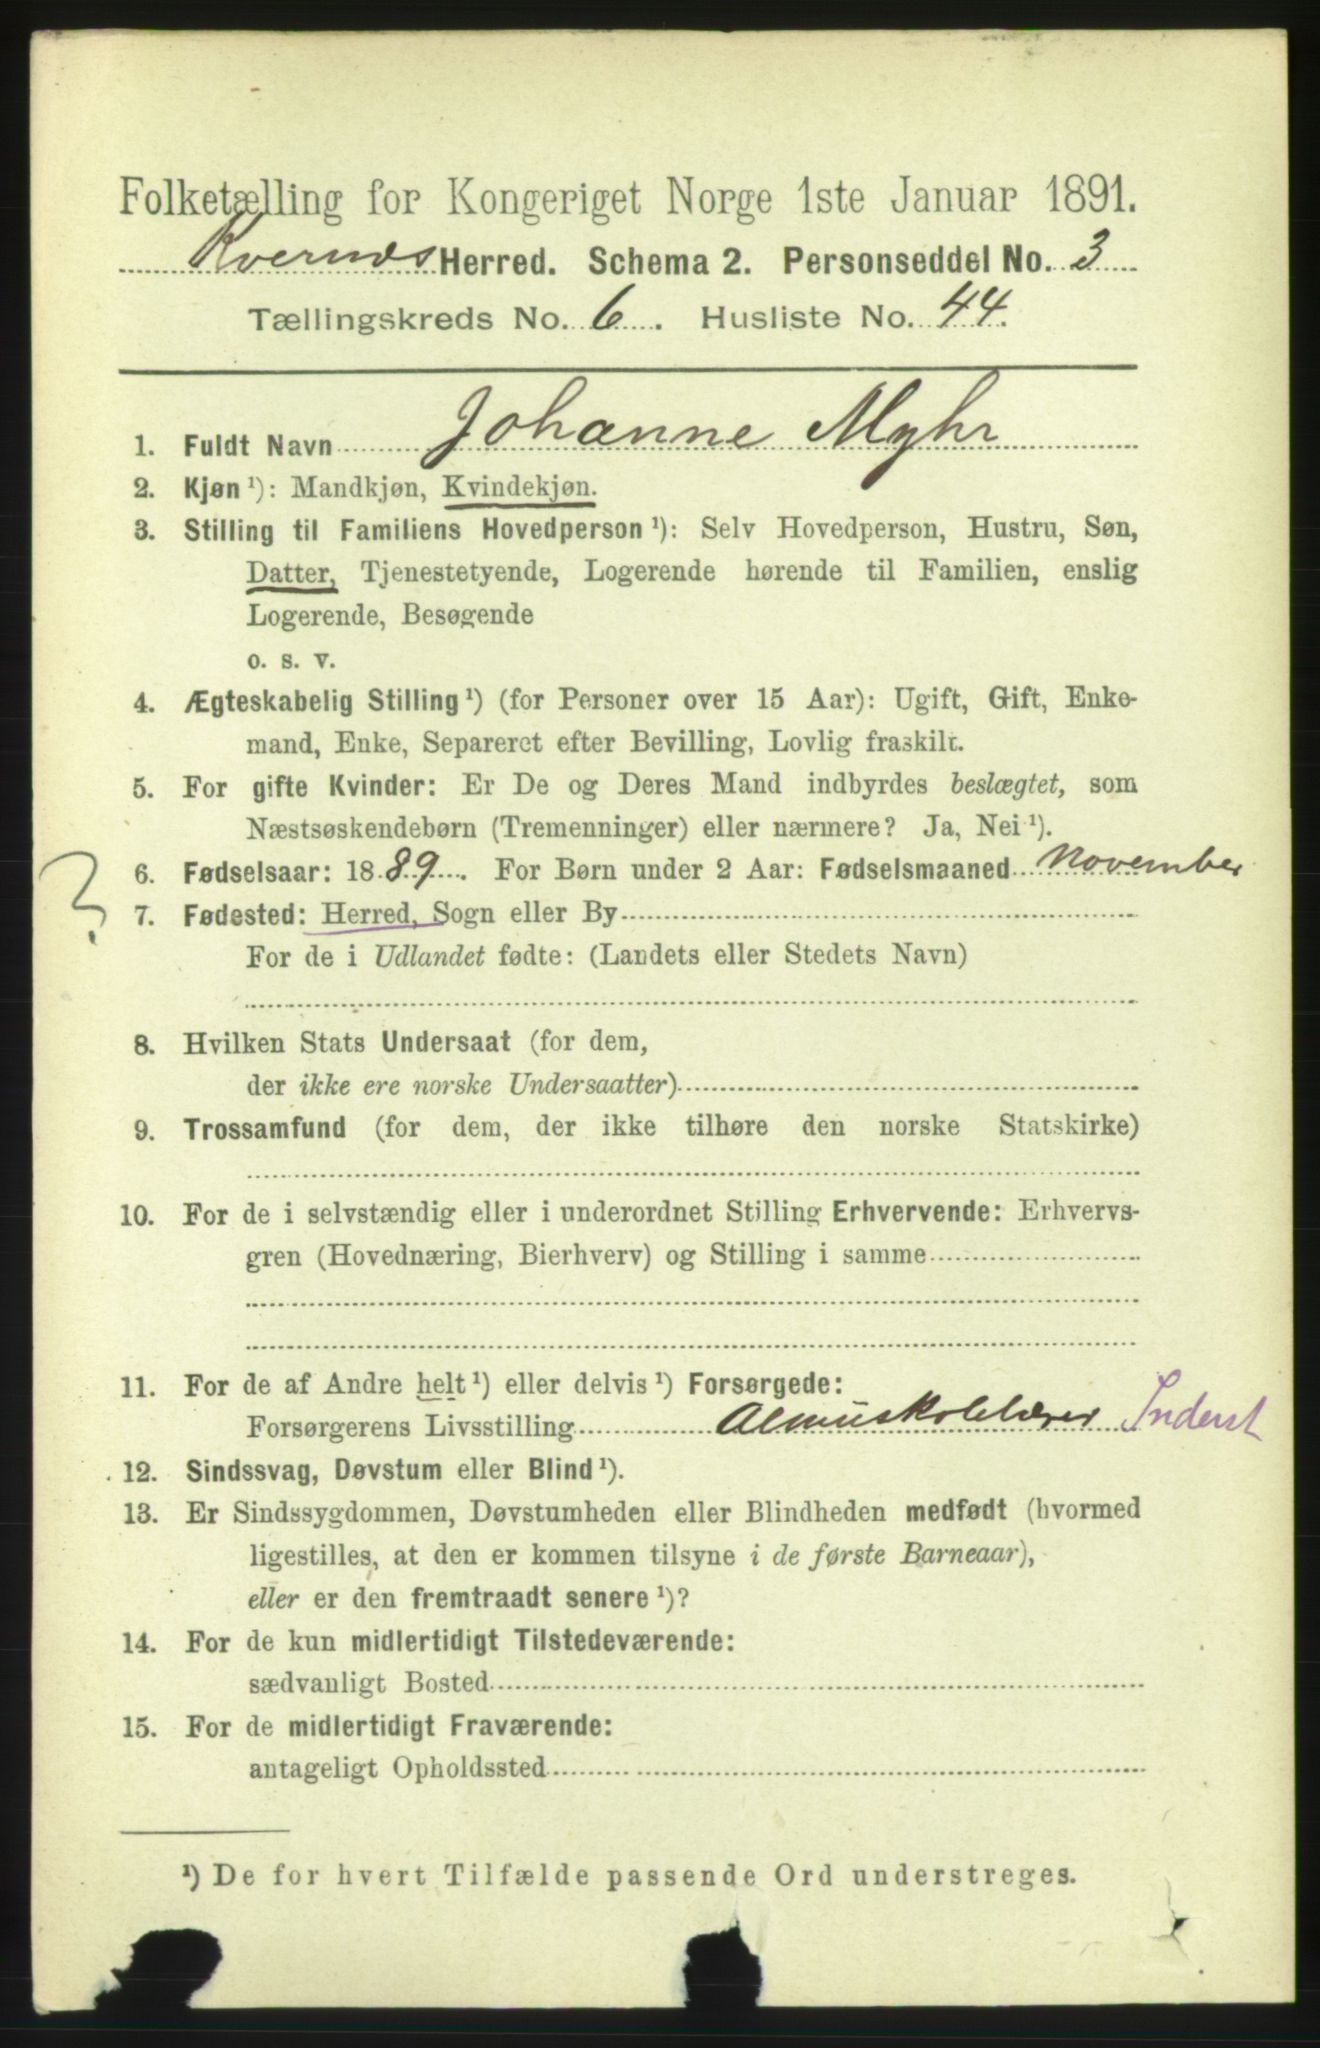 Folketælling for Kongeriget Norge 1ste Januar 1891.
Kvernæs Herred. Schema 2. Personseddel No. 3
Tællingskreds No. 6. Husliste No. 44.
1. Fuldt Navn Johanne Myhr
2. Kjøn ¹): Mandkjøn, Kvindekjøn.
3. Stilling til Familiens Hovedperson ¹): Selv Hovedperson, Hustru, Søn,
Datter, Tjenestetyende, Logerende hørende til Familien, enslig
Logerende, Besøgende
o. s. v.
4. Ægteskabelig Stilling ¹) (for Personer over 15 Aar): Ugift, Gift, Enke-
mand, Enke, Separeret efter Bevilling, Lovlig fraskilt.
5. For gifte Kvinder: Er De og Deres Mand indbyrdes beslægtet, som
Næstsøskendebørn (Tremenninger) eller nærmere? Ja, Nei ¹).
? 6. Fødselsaar: 1889. For Børn under 2 Aar: Fødselsmaaned November
7. Fødested: Herred, Sogn eller By
For de i Udlandet fødte: (Landets eller Stedets Navn)
8. Hvilken Stats Undersaat (for dem,
der ikke ere norske Undersaatter)
9. Trossamfund (for dem, der ikke tilhøre den norske Statskirke)
10. For de i selvstændig eller i underordnet Stilling Erhvervende: Erhvervs-
gren (Hovednæring, Bierhverv) og Stilling i samme
11. For de af Andre helt ¹) eller delvis ¹) Forsørgede:
Forsørgerens Livsstilling Almuskolelærer Inderst
12. Sindssvag, Døvstum eller Blind ¹).
13. Er Sindssygdommen, Døvstumheden eller Blindheden medfødt (hvormed
ligestilles, at den er kommen tilsyne i de første Barneaar),
eller er den fremtraadt senere ¹)?
14. For de kun midlertidigt Tilstedeværende:
sædvanligt Bosted
15. For de midlertidigt Fraværende:
antageligt Opholdssted
¹) De for hvert Tilfælde passende Ord understreges.